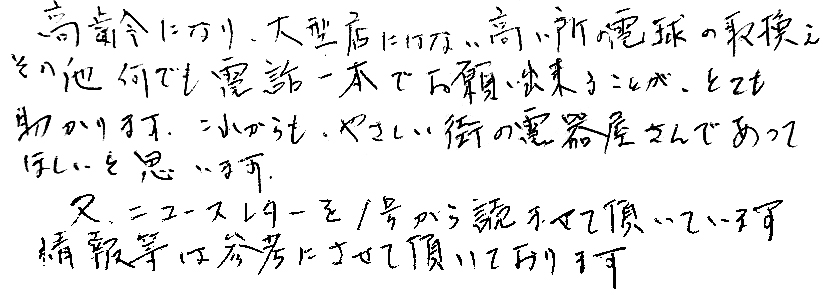 高齢になり、大型店にはない、高い所の電球の取換え
その他何でも電話一本でお願い出来ることが、とても
助かります。これからも、やさしい街の電器屋さんであって
ほしいと思います。
又、ニュースレターを1号から読ませて頂いています
情報等は参考にさせて頂いております